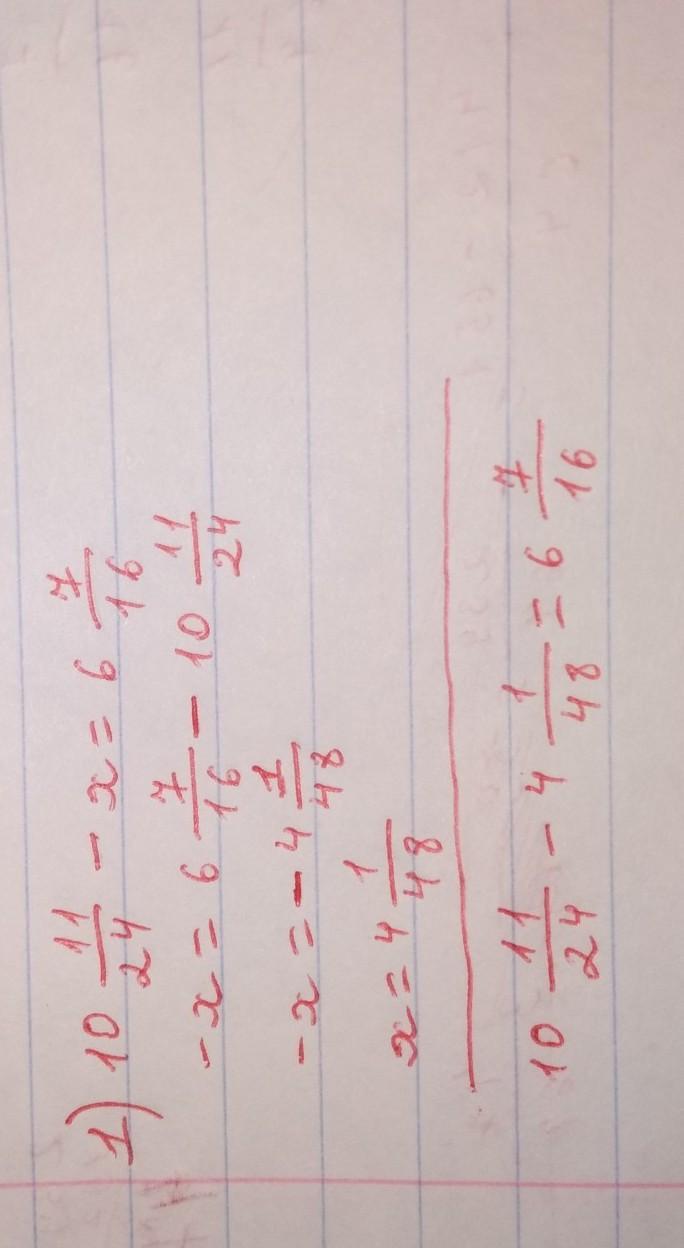 1) 10 11/24 - x = 6 7/16
-x = 6 7/16 - 10 11/24
-x = -4 1/48
x = 4 1/48
10 11/24 - 4 1/48 = 6 7/16